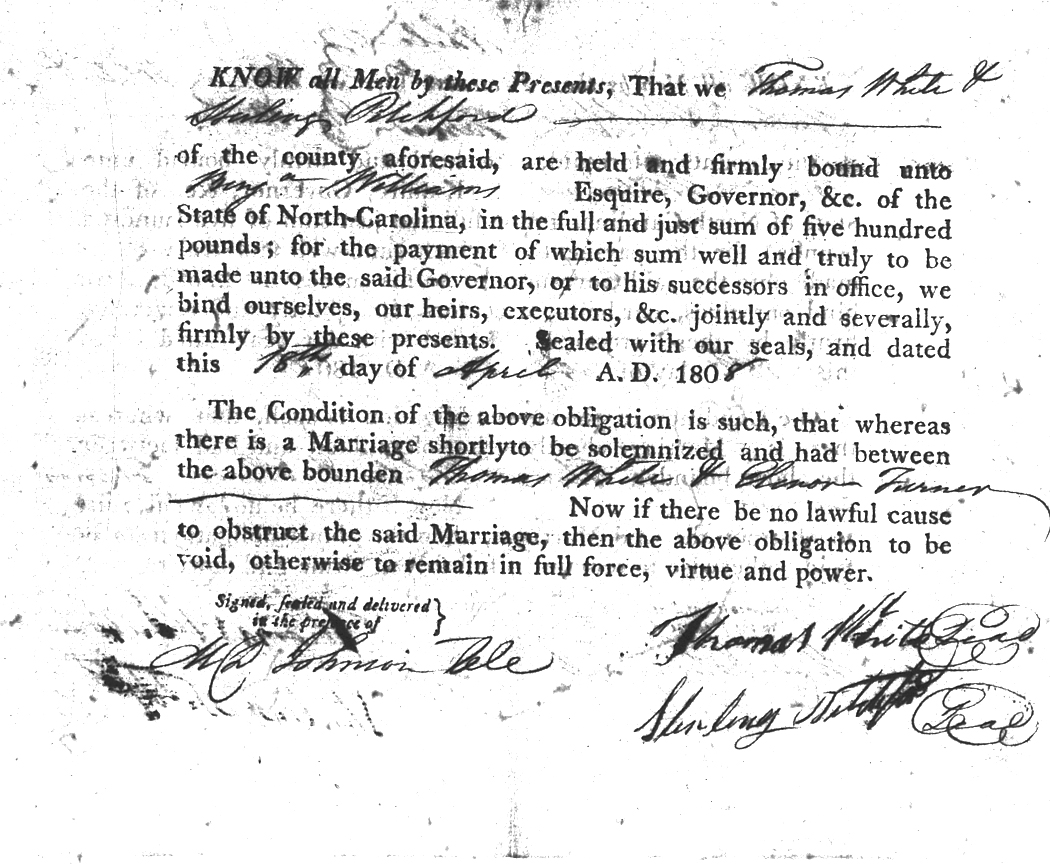 KNOW all Men by these Presents, That we Thomas White &
Sterling Pitchford
of the county aforesaid, are held and firmly bound unto
Benj a Williams Esquire, Governor, &c. of the
State of North-Carolina, in the full and just sum of five hundred
pounds; for the payment of which sum well and truly to be
made unto the said Governor, or to his successors in office, we
bind ourselves, our heirs, executors, &c. jointly and severally,
firmly by these presents. Sealed with our seals, and dated
this 18th, day of April A. D. 1808
The Condition of the above obligation is such, that whereas
there is a Marriage shortlyto be solemnized and had between
the above bounden Thomas White & Elenor Turner
Now if there be no lawful cause
to obstruct the said Marriage, then the above obligation to be
void, otherwise to remain in full force, virtue and power.
Signed, sealed and delivered }
in the presence of
M D Johnson
Thomas White Seal
Sterling Pitchford Seal